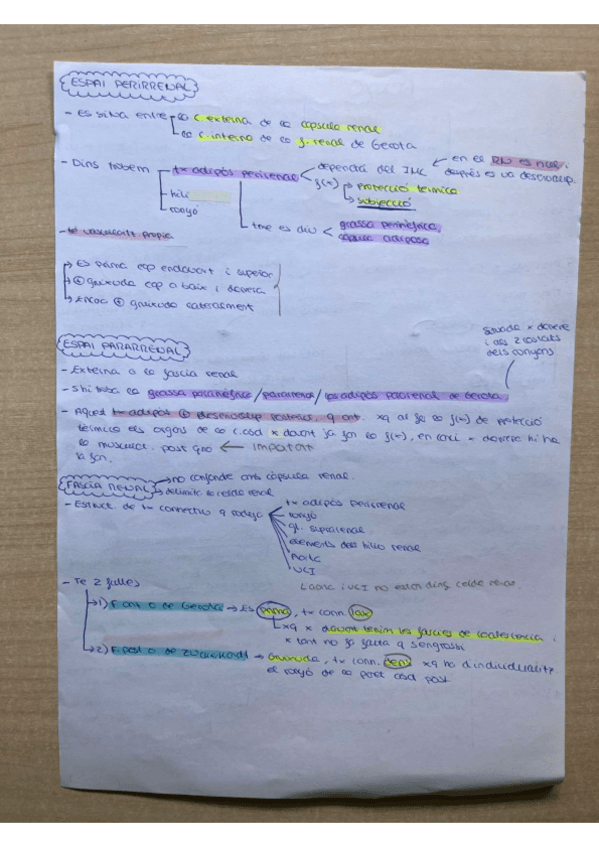 ESPAI PERIRRENAL
- Es situa entre la C. externa de la capsula renal
la C. interna de la f. renal de Gerota
- Dins trobem tx adipós perirenal dependrà del IMC en el RN es nul i
f(x) protecció tèrmica després es va desenvolup.
subjecció
hili
ronyó
tme es diu grassa perinefrica,
càpsula adiposa
- té vascularit propia
Es prima cap endavant i superior
⊕ gruixuda cap a baix i darrera
Encar ⊕ gruixuda lateralment
Situada x darrere
i als 2 costats
dels ronyons
ESPAI PARARRENAL
- Externa a la fascia renal
- S'hi troba la grassa paranefrica / pararrenal / tx adipós pararenal de Gerota.
- Aquest tx adipós ⊕ desenvolup posterior. q ant. xq al fer la f(x) de protecció
tèrmica els organs de la c. abd x davant ja fan la f(x), en canvi x darrere hi ha
la muscular. post que ← IMPORTANT
la fan.
FASCIA RENAL → no confondre amb càpsula renal.
→ delimita la celda renal
- Estruct. de tx connectiu q rodeja tx adipós perirenal
ronyó
gl. suprarenal
elements dels hilio renal
Aorta
VCI
L'aorta i VCI no estan dins celda renal
- Te 2 fulles
→ 1) F. ant o de Gerota → Es prima, tx conn. lax
→ xq x davant tenim les fascies de coalescencia i
x tant no fa falta q s'engrosei
→ 2) F. post o de Zuckerkandl → Gruixuda, tx conn. dens xq ha d'individualitz
el ronyó de la paret abd post